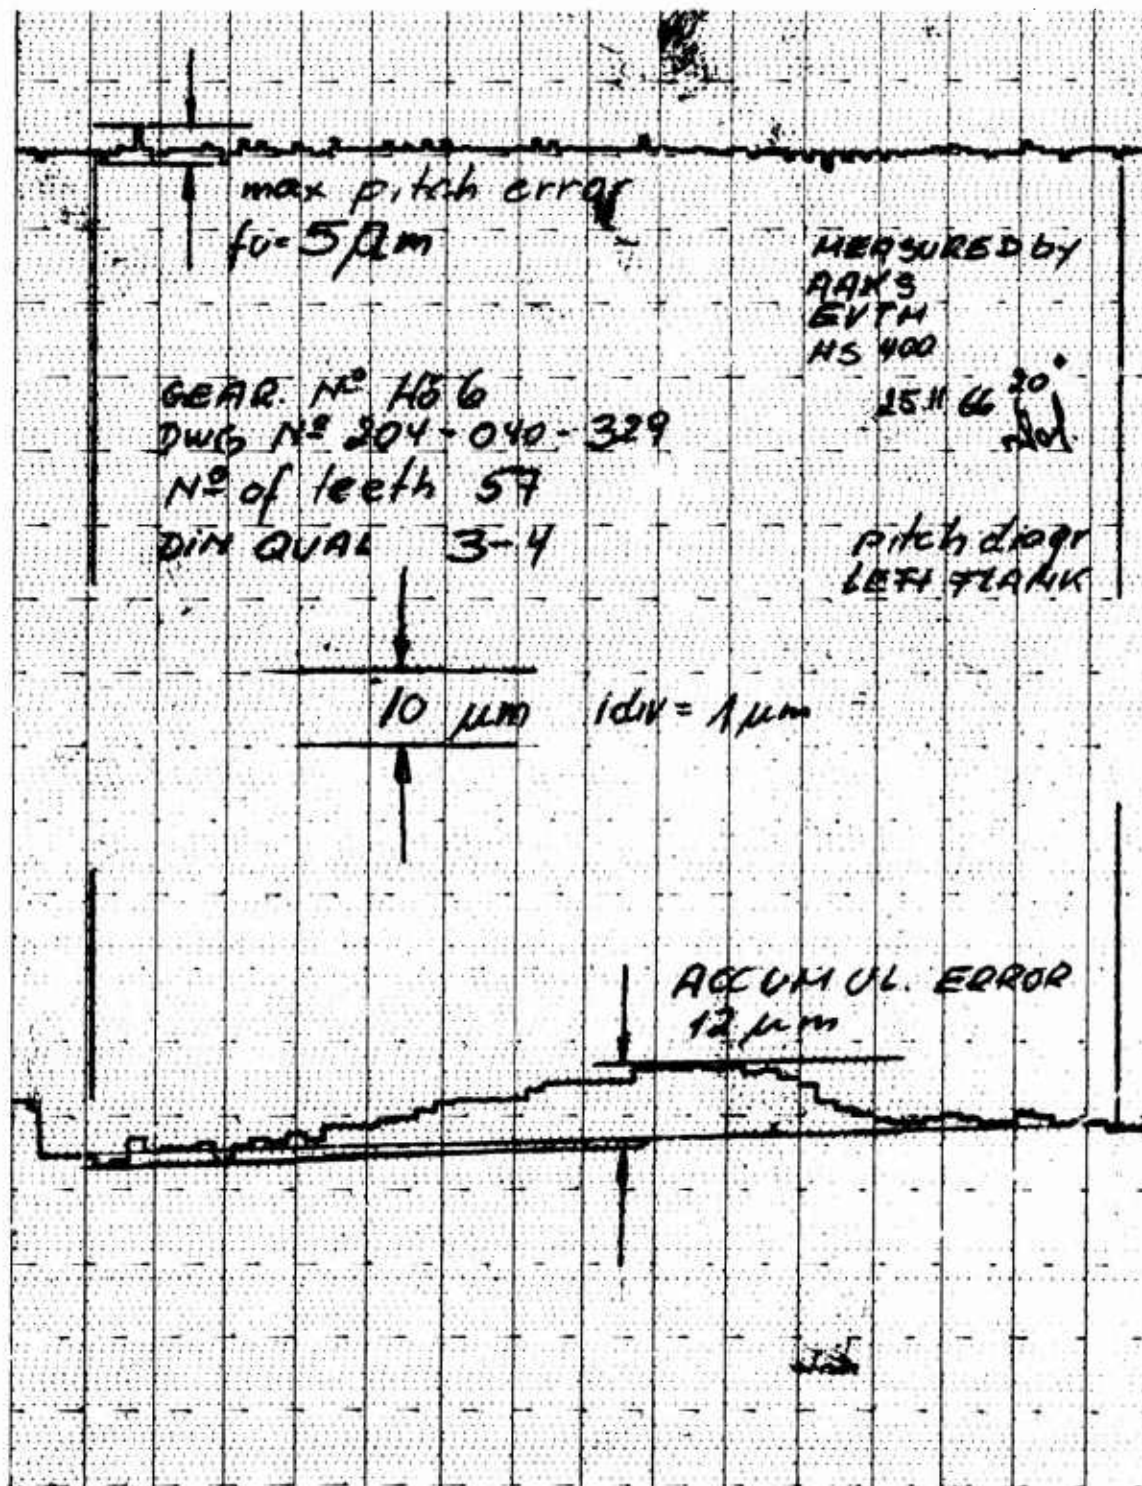 max pitch error
fv = 5 µm
MEASURED by
AAKS
EVTM
HS 400
20°
25 11 66
GEAR. Nº Hö 6
DWG Nº 204-040-329
Nº of teeth 57
DIN QUAL 3-4
pitch diagr
LEFT FLANK
10 µm 1div = 1 µm
ACCUMUL. ERROR
12 µm